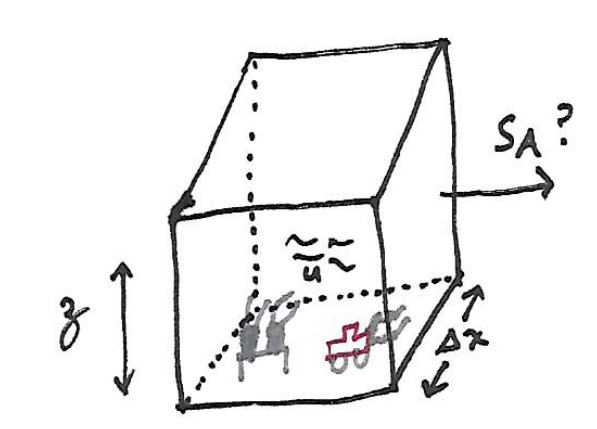 S_A ?
u
z
Δx